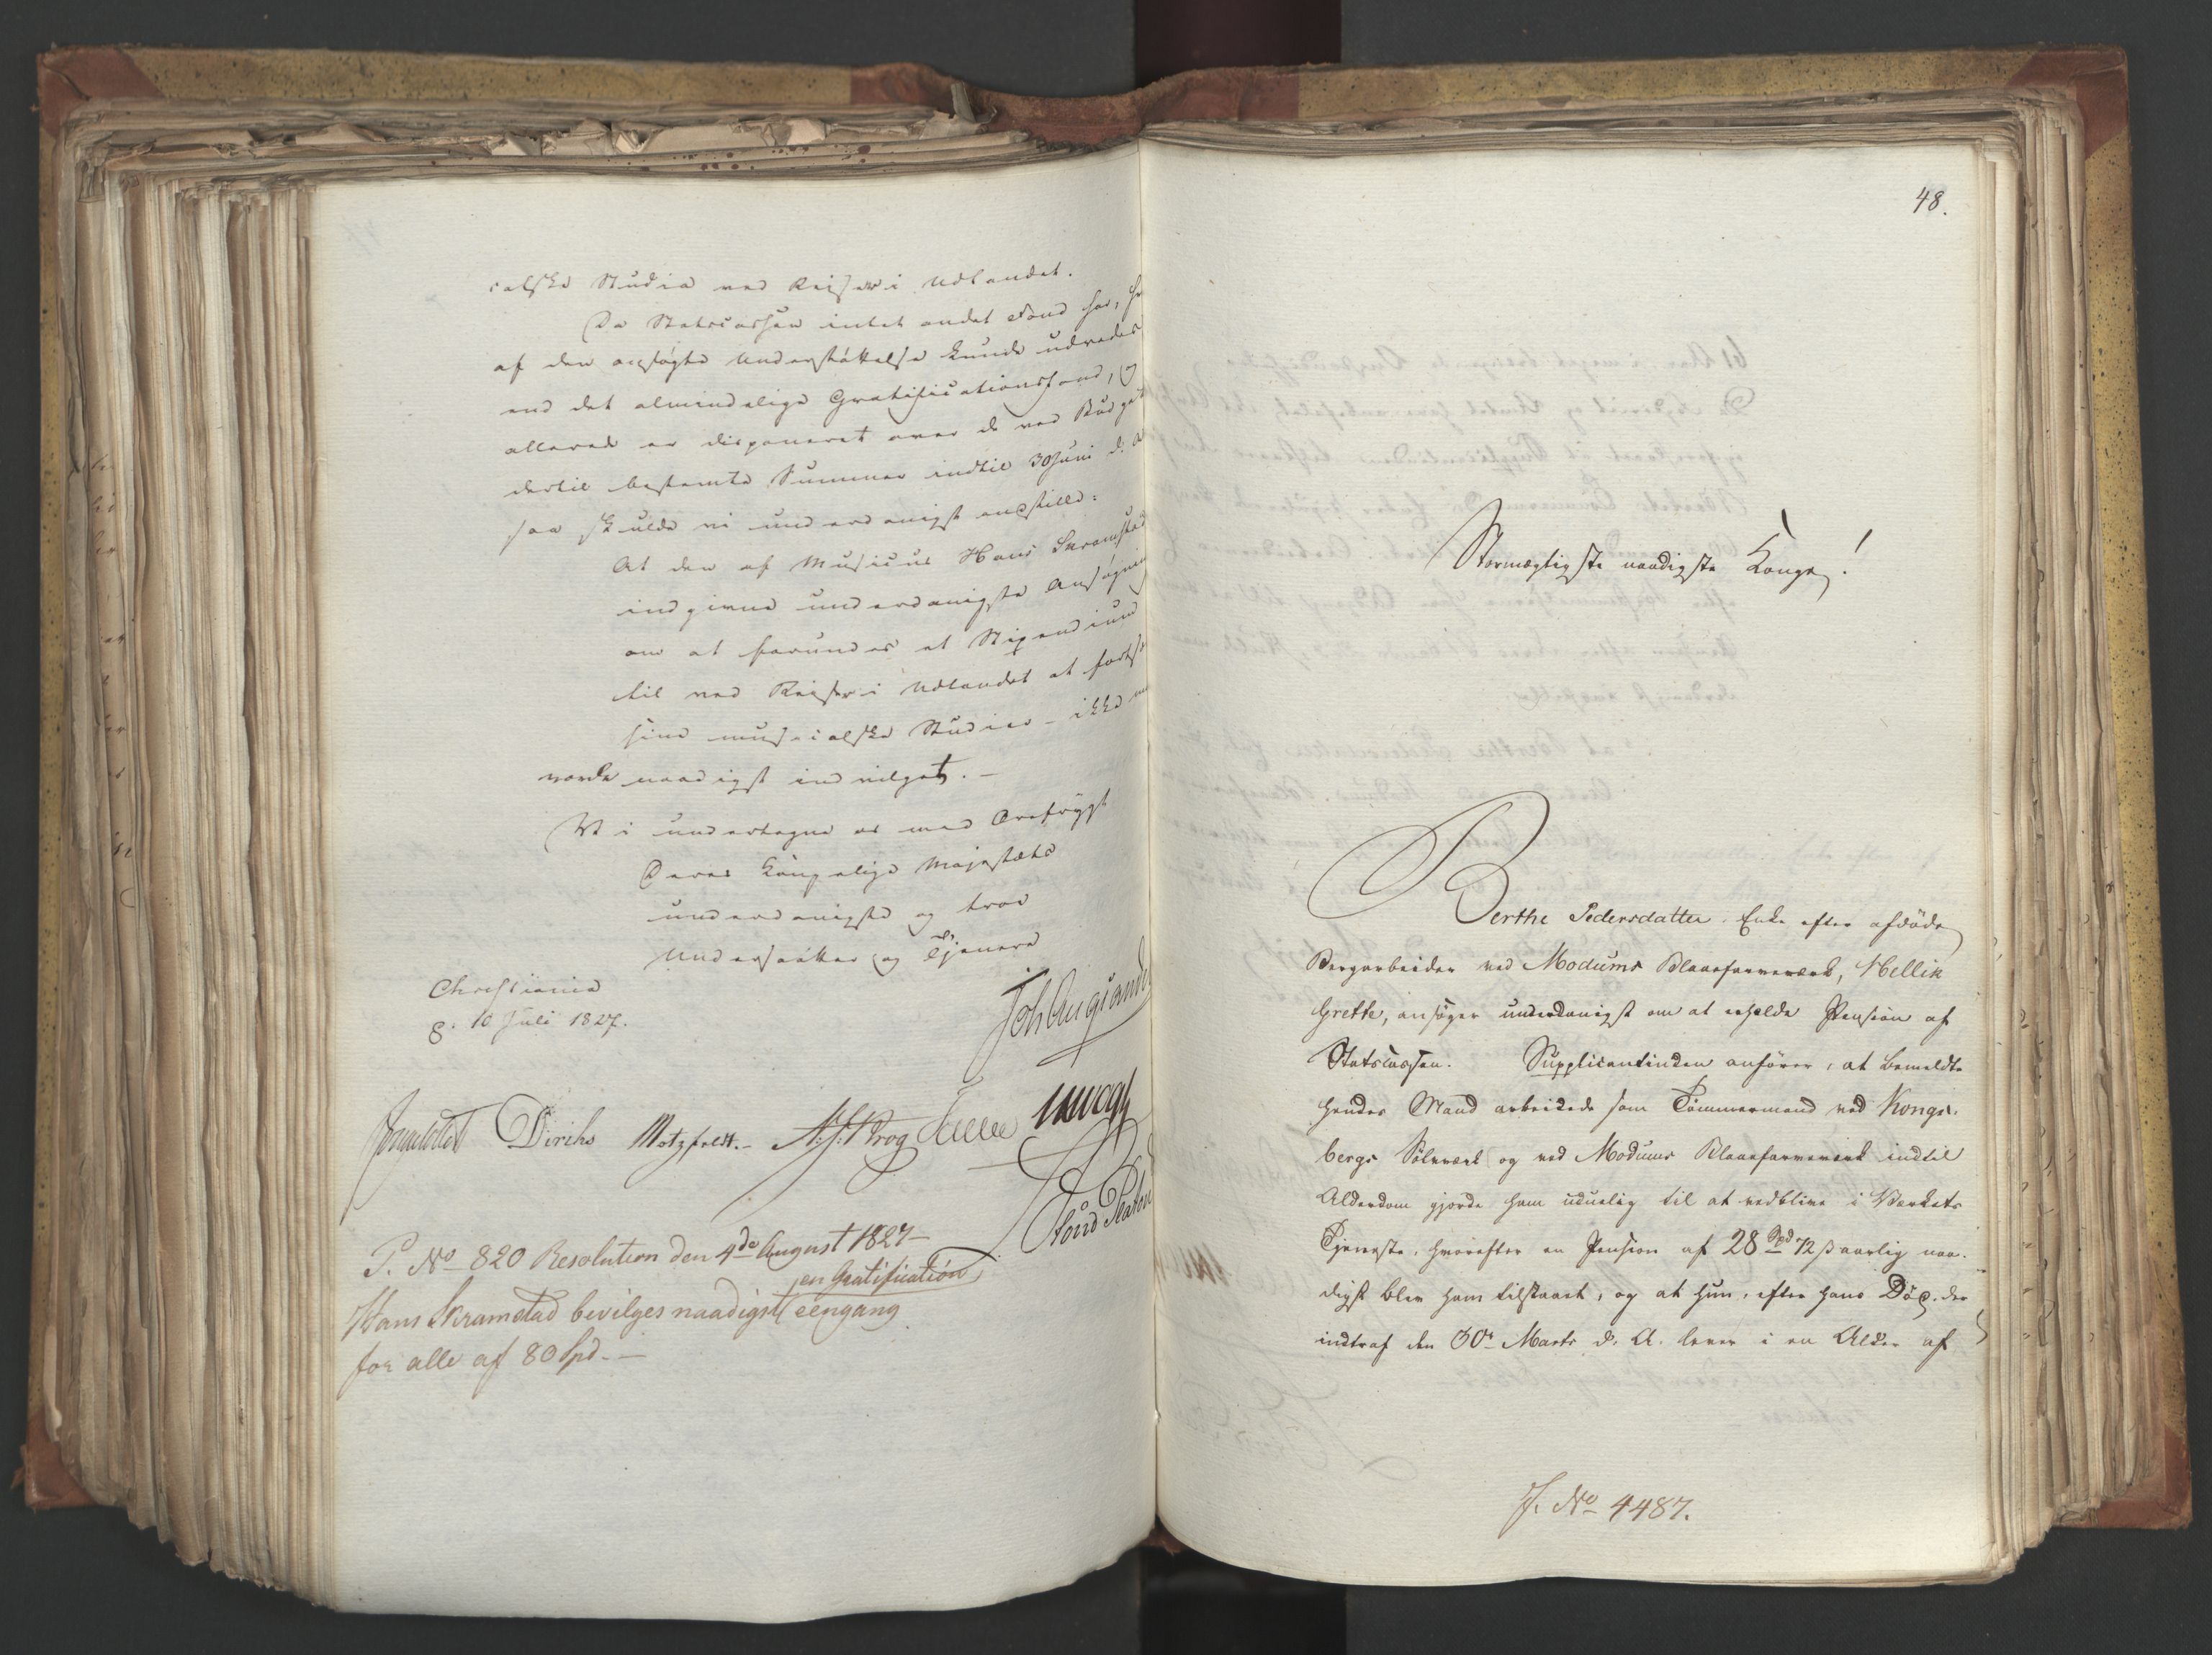 calske Studia ved Reiser i Udlandet.
Da Statscassen intet andet Fond har, hv
af den ansøgte Understøttelse kunde udredes
end det almindelige Gratificationsfond, og
allerede er disponeret over de ved Budget
dertil bestemte Summer indtil 30 Juni d. A
saa skulde vi underdanigst indstille:
At den af Musicus Hans Skramstad
indgivne underdanigste Ansøgning
om at forundes et Stipendium
til ved Reiser i Udlandet at fortsæ
sine musicalske Studier – ikke m
vorde naadigst indvilget. –
Vi undertegne os med Ærefrygt
Deres Kongelige Majestæts
underdanigste og troe
Undersaatter og Tjenere
Christiania
d. 10 Juli 1827.
Diriks Motzfeldt. – Krog
P. No 820 Resolution den 4de August 1827 –
en Gratification
Hans Skramstad bevilges naadigst eengang
for alle af 80 Spd. —
48.
Stormægtigste naadigste Konge!
Berthe Pedersdatter, Enke efter afdøde
Bergarbeider ved Modums Blaafarveværk, Hellik
Grette, ansøger underdanigst om at erholde Pension af
Statscassen. Supplicantinden anfører, at bemeldte
hendes Mand arbeidede som Tømmermand ved Kongs-
bergs Sølvværk og ved Modums Blaafarveværk indtil
Alderdom gjorde ham uduelig til at vedblive i Værkets
Tjeneste, hvorefter en Pension af 28 Spd 72 ß aarlig naa-
digst blev ham tilstaaet, og at hun, efter hans Død, der
indtraf den 30te Marts d. A. lever i en Alder af
J. No 4487.